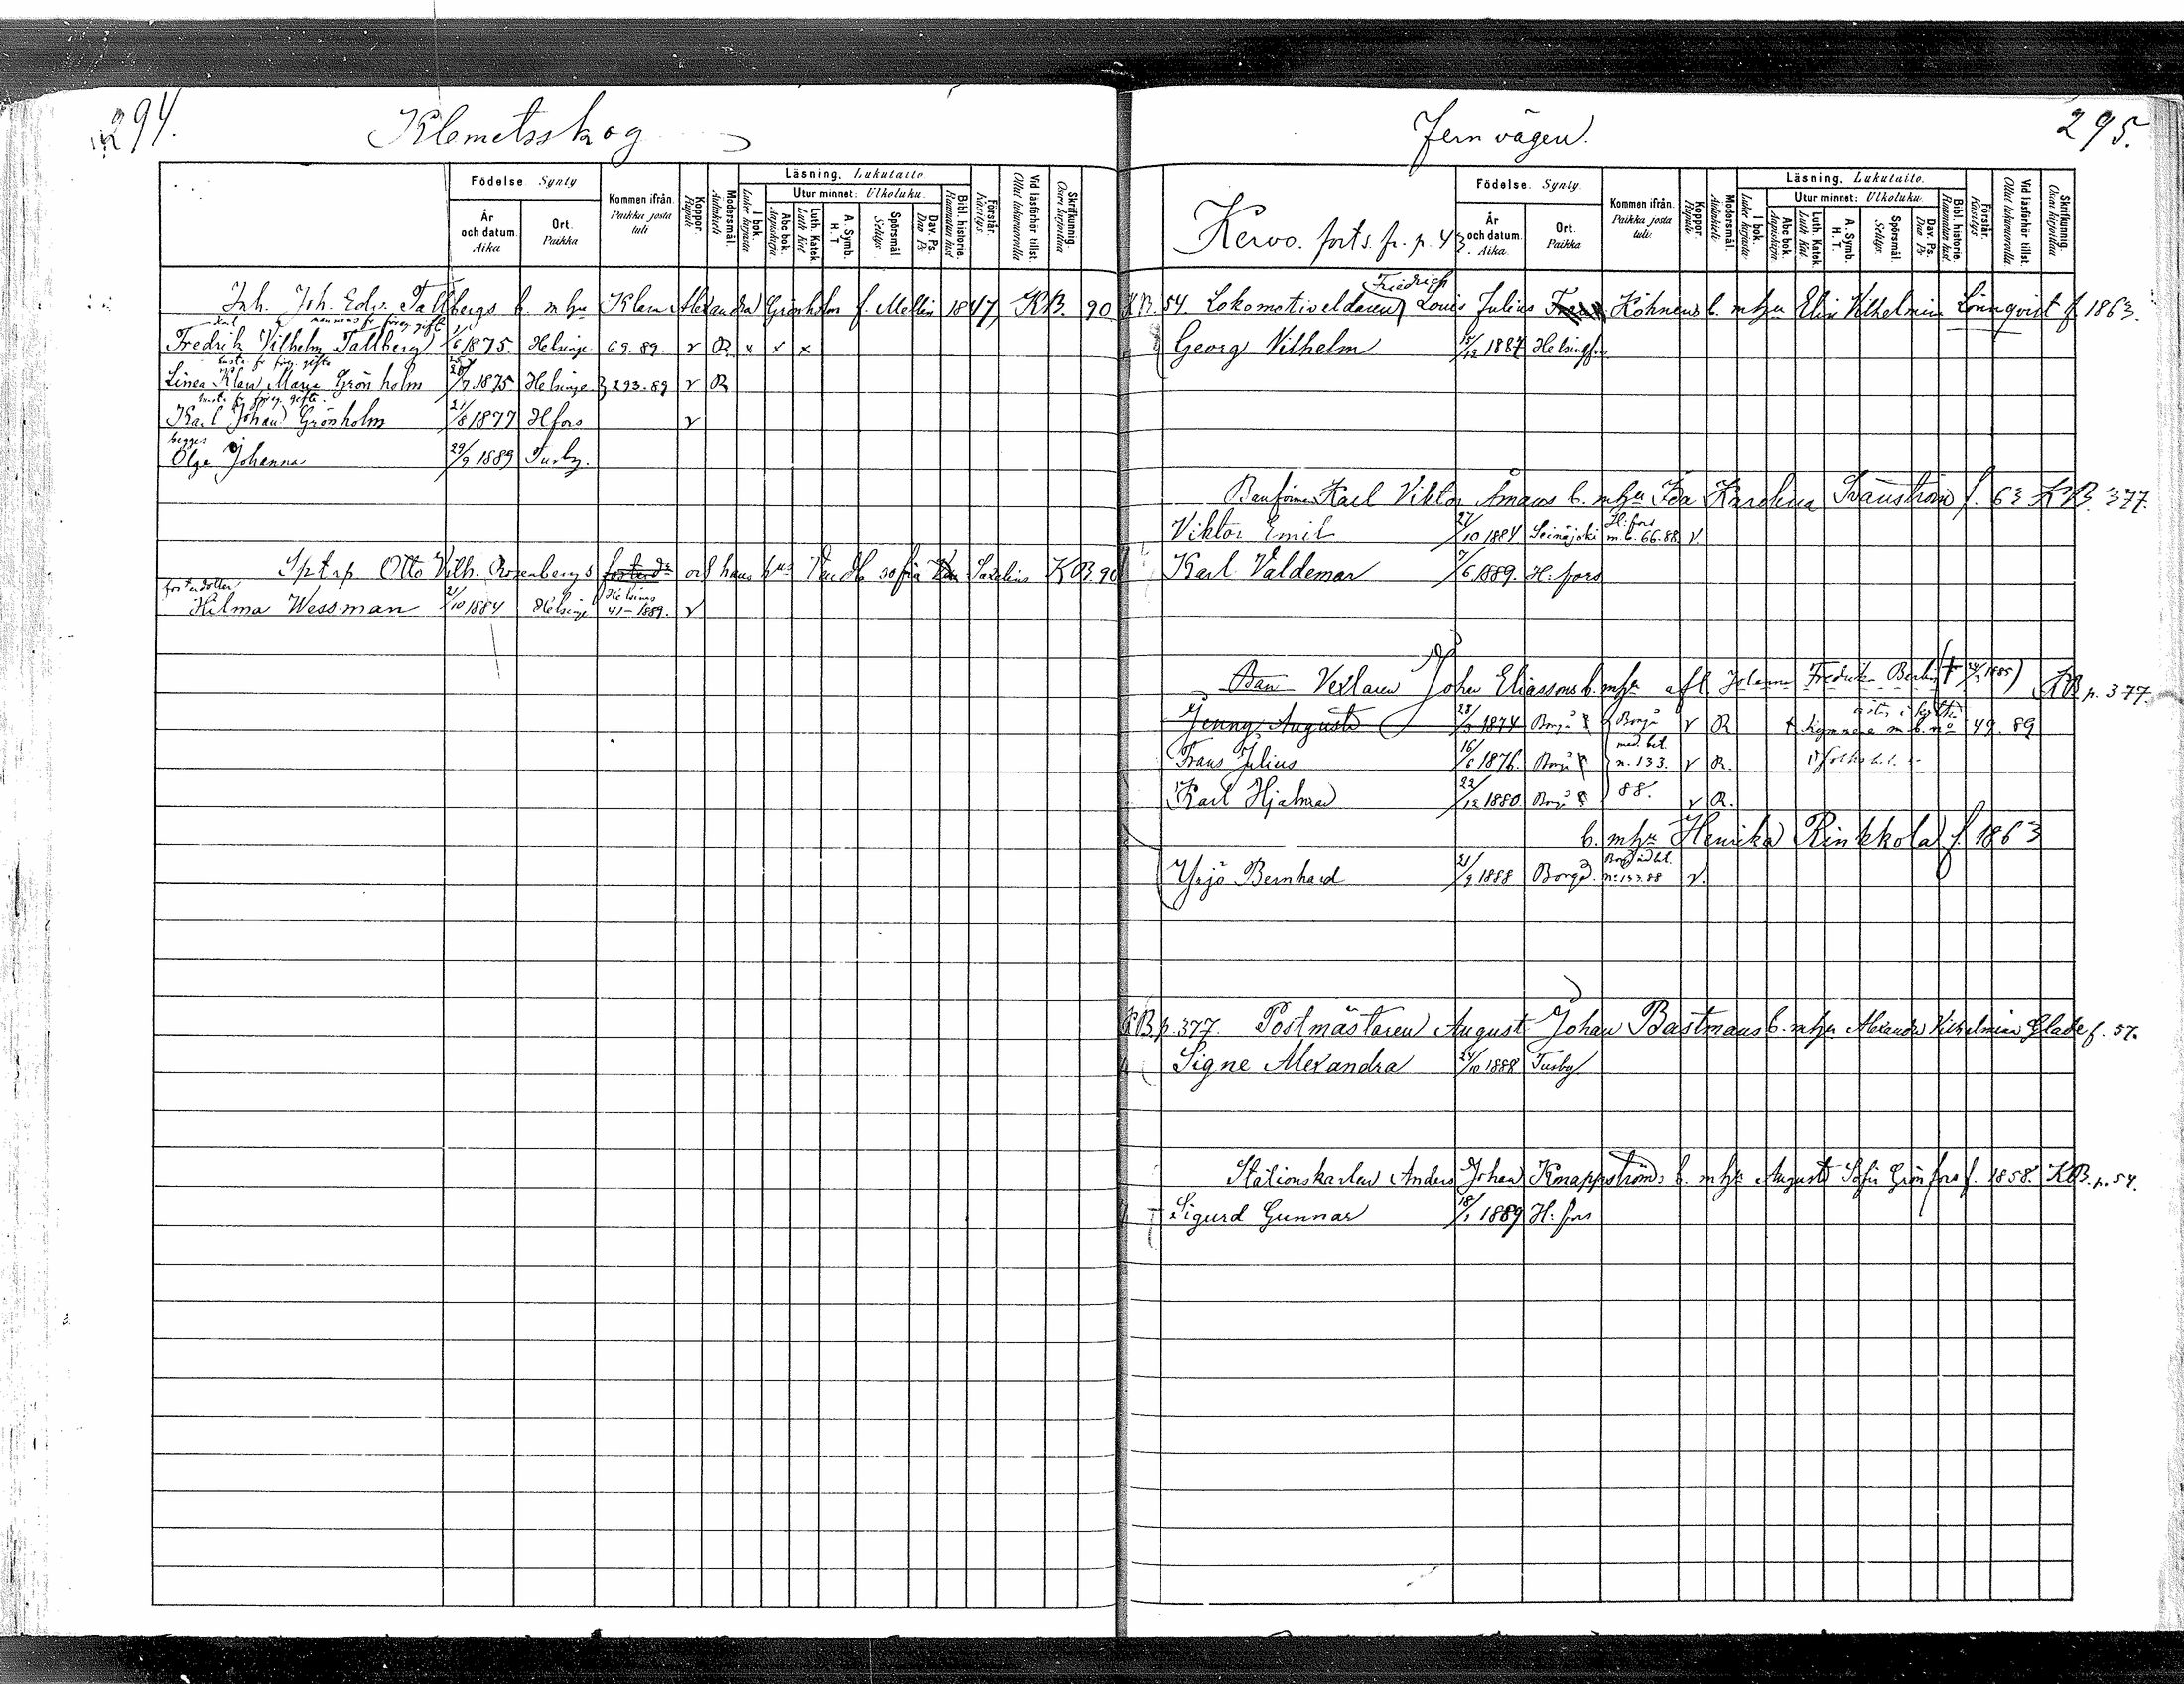 294.
Klemetsskog
Födelse Synty
År och datum. Aika
Ort. Paikka
Kommen ifrån. Paikka josta tuli
Koppor. Rupuli
Modersmål. Äidinkieli
Läsning. Lukutaito
I bok. Lukee kirjasta
Utur minnet: Ulkoluku.
Abc bok. Aapiskirja
Luth. Katek. Luth. Kat.
A. Symb. H. T.
Spörsmål Selitys.
Dav. Ps. Dav. Ps.
Bibl. historie. Raamatun hist.
Förstår. Käsitys.
Vid läsförhör tillst. Ollut lukuvuorolla
Skrifkunnig. Osaa kirjoittaa
Inh. Joh. Edv. Tallbergs b. m hu Klara Alexandra Grönholm f. Mellin 1847, KB. 90
mannens fr föreg. gift
Fredrik Vilhelm Tallberg 1/6 1875. Helsinge 69. 89. v R x x x
hustr. fr föreg. gifte
Linea Klara Maria Grönholm 20/7 1875 Helsinge 293-89 v R
hustr. fr föreg. gifte.
Karl Johan Grönholm 21/8 1877 Hfors v
begges
Olga Johanna 29/9 1889 Tusby.
Otto Vilh. Rosenbergs och hans hus sofia KB. 90
fosterdotter
Hilma Wessman 21/10 1884 Helsinge Helsinge 41-1889. v
Jernvägen.
295.
Kervo. forts. fr. p. 43.
Födelse. Synty.
År och datum. Aika.
Ort. Paikka
Kommen ifrån. Paikka josta tuli.
Koppor. Rupuli
Modersmål. Äidinkieli
Läsning. Lukutaito.
I bok. Lukee kirjasta.
Utur minnet: Ulkoluku.
Abc bok. Aapiskirja
Luth. Katek. Luth. Kat.
A. Symb. H. T.
Spörsmål. Selitys.
Dav. Ps. Dav. Ps.
Bibl. historie. Raamatun hist.
Förstår. Käsitys
Vid läsförhör tillst. Ollut lukuvuorolla
Skrifkunnig. Osaa kirjoittaa
Friedrich
KB. 54 Lokomotiveldaren Louis Julius Köhnens b. m hu Elin Vilhelmina Lönnqvist f 1863.
Georg Vilhelm 15/12 1887 Helsingfors
Banförman Karl Viktor Åmans b. m hu Ida Karolina Svanström f. 63 KB. 377.
Viktor Emil 27/10 1884 Seinäjoki H:fors m.b. 66.88. v.
Karl Valdemar 7/6 1889. H:fors
Ban Vexlaren Johan Eliassons b. m hu afl. Johanna Fredrika Berlin († 1885) KB p. 377.
Jenny Augusta 28/3 1874 Borgå Borgå v R Kymmene m b. no 49. 89
Frans Julius 16/6 1876. Borgå med bet. n. 133. v R.
Karl Hjalmar 22/12 1880. Borgå 88. v R.
b. m hu Henrika Rinkkola f. 1863
Yrjö Bernhard 21/9 1888 Borgå. no 133.88 v.
KB p. 377. Postmästaren August Johan Bastmans b. m hu Alexandra Vilhelmina Glade f. 57.
Signe Alexandra 24/10 1888 Tusby
Stationskarlen Anders Johan Knappströms b. m hu Augusta Sofia Grönfors f. 1858. KB. p. 54.
Sigurd Gunnar 18/1 1889 H:fors